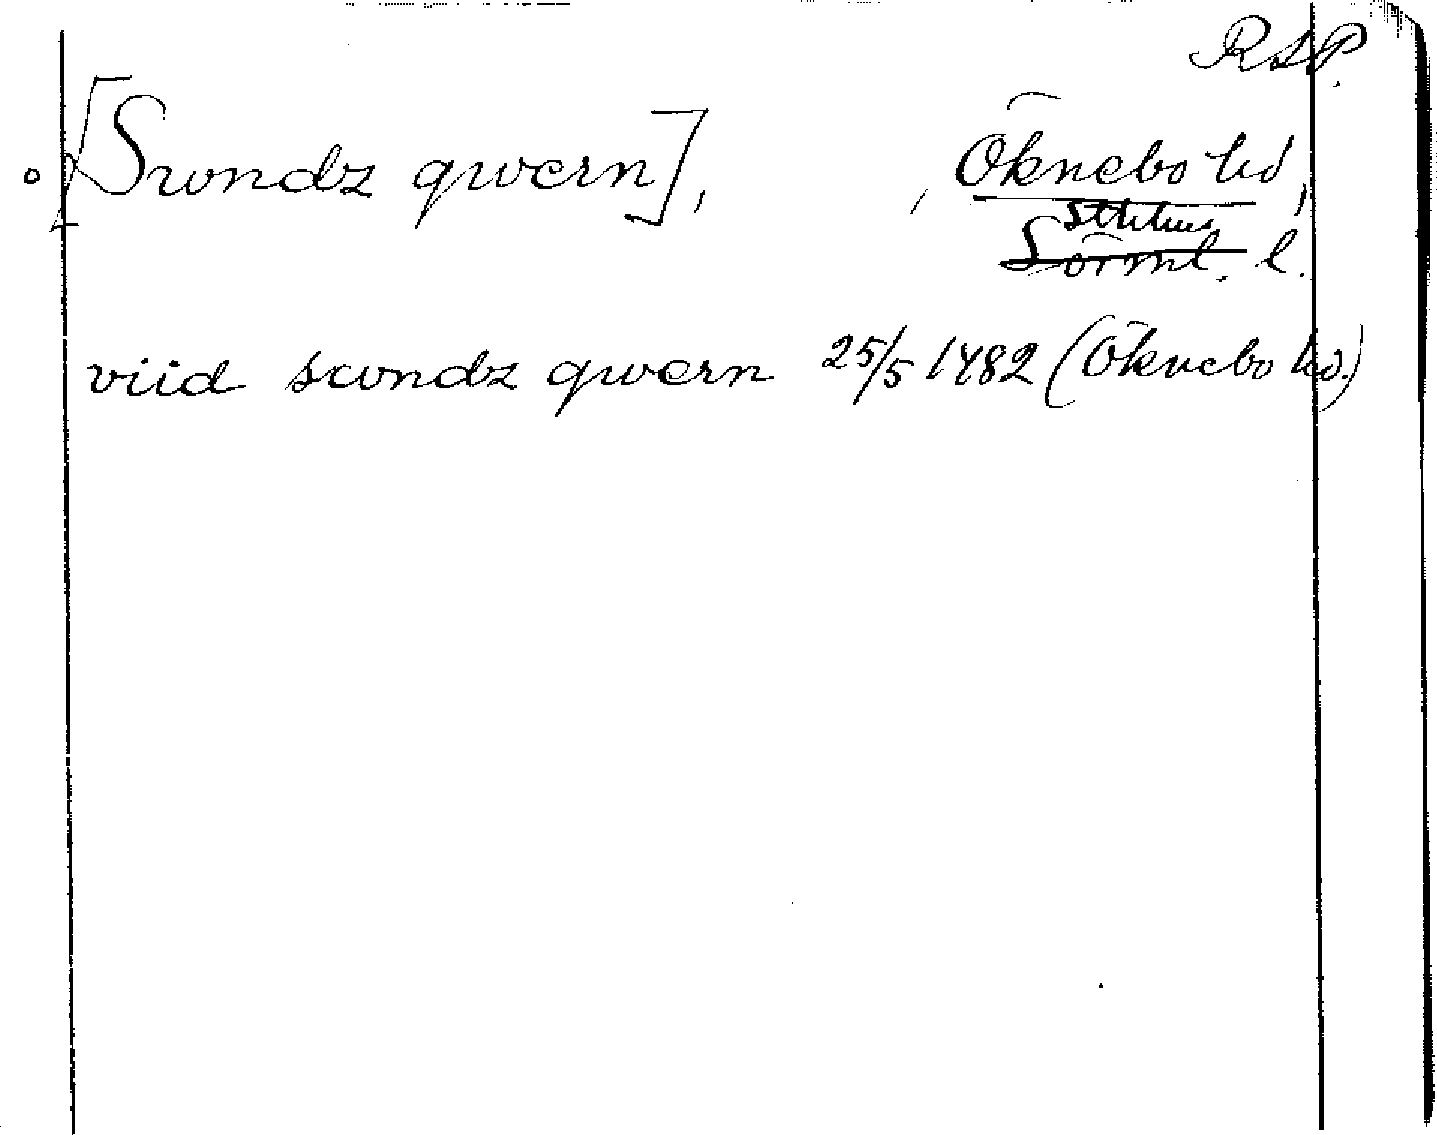 RSP.
[Swndz qwern], , Öknebo hd,
Sthlms
Sörml. l.
viid swndz qwern 25/5 1482 (Öknebo hd.)